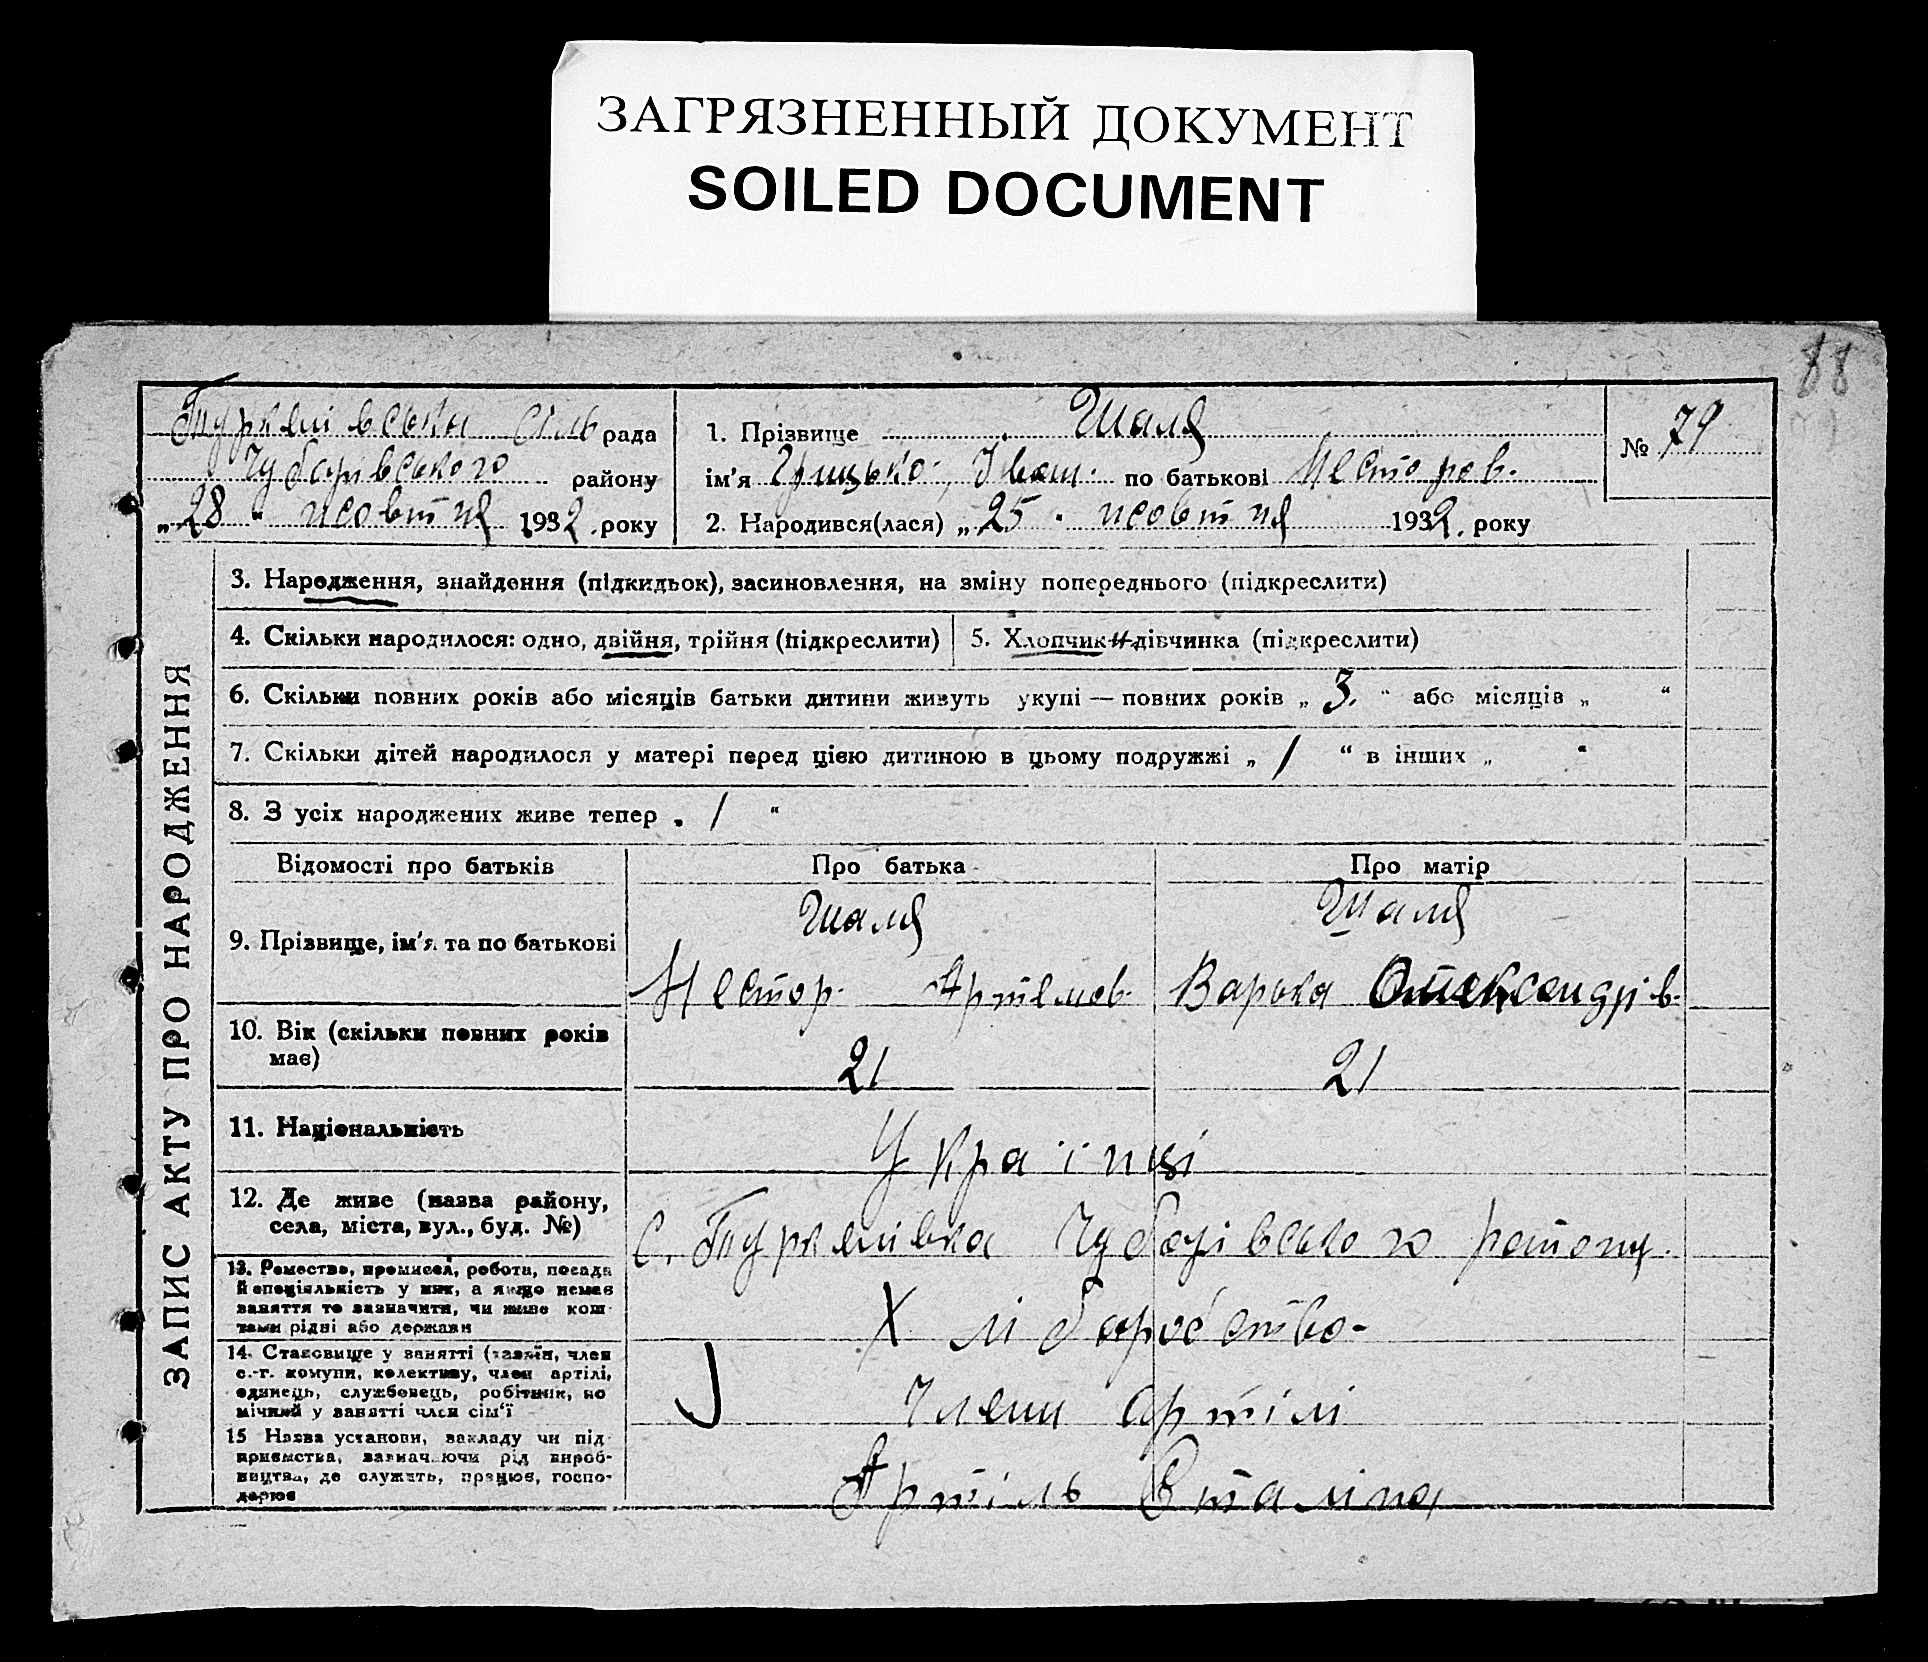 ЗАГРЯЗНЕННЫЙ ДОКУМЕНТ
SOILED DOCUMENT
88
сіль рада
Чубарівського району
„28“ жовтня 1932. року
1. Прізвище Шаля
ім'я Грицько, Іван. по батькові Несторов.
2. Народився(лася) „25“ жовтня 1932. року
№ 79
ЗАПИС АКТУ ПРО НАРОДЖЕННЯ
3. Народження, знайдення (підкидьок), засиновлення, на зміну попереднього (підкреслити)
4. Скільки народилося: одно, двійня, трійня (підкреслити)
5. Хлопчик дівчинка (підкреслити)
6. Скільки повних років або місяців батьки дитини живуть укупі — повних років „ 3. “ або місяців „ “
7. Скільки дітей народилося у матері перед цією дитиною в цьому подружжі „ / “ в інших „ “
8. З усіх народжених живе тепер „ / “
Відомості про батьків
Про батька
Про матір
9. Прізвище, ім'я та по батькові
Шаля
Нестор. Артемов.
Шаля
Варька Олександрів.
10. Вік (скільки повних років
має)
21
21
11. Національність
Українці
12. Де живе (назва району,
села, міста, вул., буд. №)
с. Чубарівського району.
13. Ремество, промисел, робота, посада
й спеціяльність у них, а якщо немає
заняття то зазначити, чи живе кош-
тами рідні або держави
Хліборобство.
14. Становище у занятті (хазяїн, член
с.-г. комуни, колективу, член артілі,
одинець, службовець, робітник, по
мічний у занятті член сім'ї
Члени артілі
15 Назва установи, закладу чи під
приємства, зазначаючи рід вироб-
ництва, де служить, працює, госпо-
дарює
Артіль Сталіна